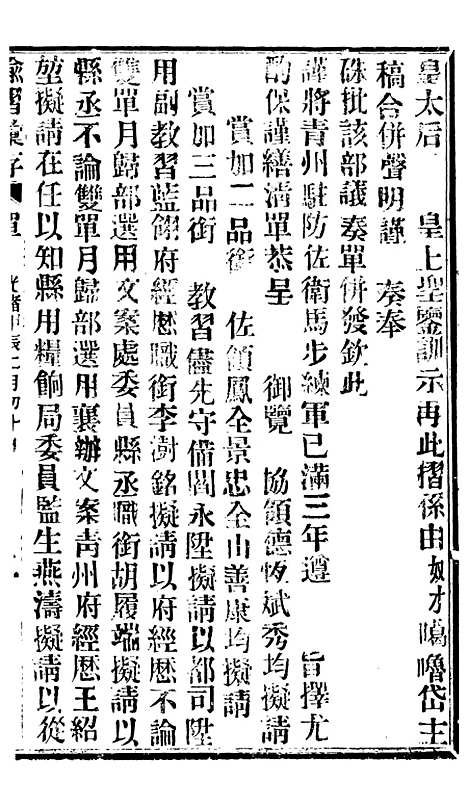 皇太后　皇上聖鑒訓示再此摺係由奴才噶嚕岱主
稿合併聲明謹　奏奉
硃批該部議奏單併發欽此
謹將青州駐防佐衛馬步練軍已滿三年遵　旨擇尤
酌保謹繕清單恭呈　御覽　協領德恆斌秀均擬請
賞加二品銜　佐領鳳全景忠全山善康均擬請
賞加三品銜　教習儘先守備閻永陞擬請以都司陞
用副教習藍翎府經歷職銜李澍銘擬請以府經歷不論
雙單月歸部選用文案處委員縣丞職銜胡履端擬請以
縣丞不論雙單月歸部選用襄辦文案青州府經歷王紹
堃擬請在任以知縣用糧餉局委員監生燕濤擬請以從
諭摺彙存　單　光緒甲辰七月初十日